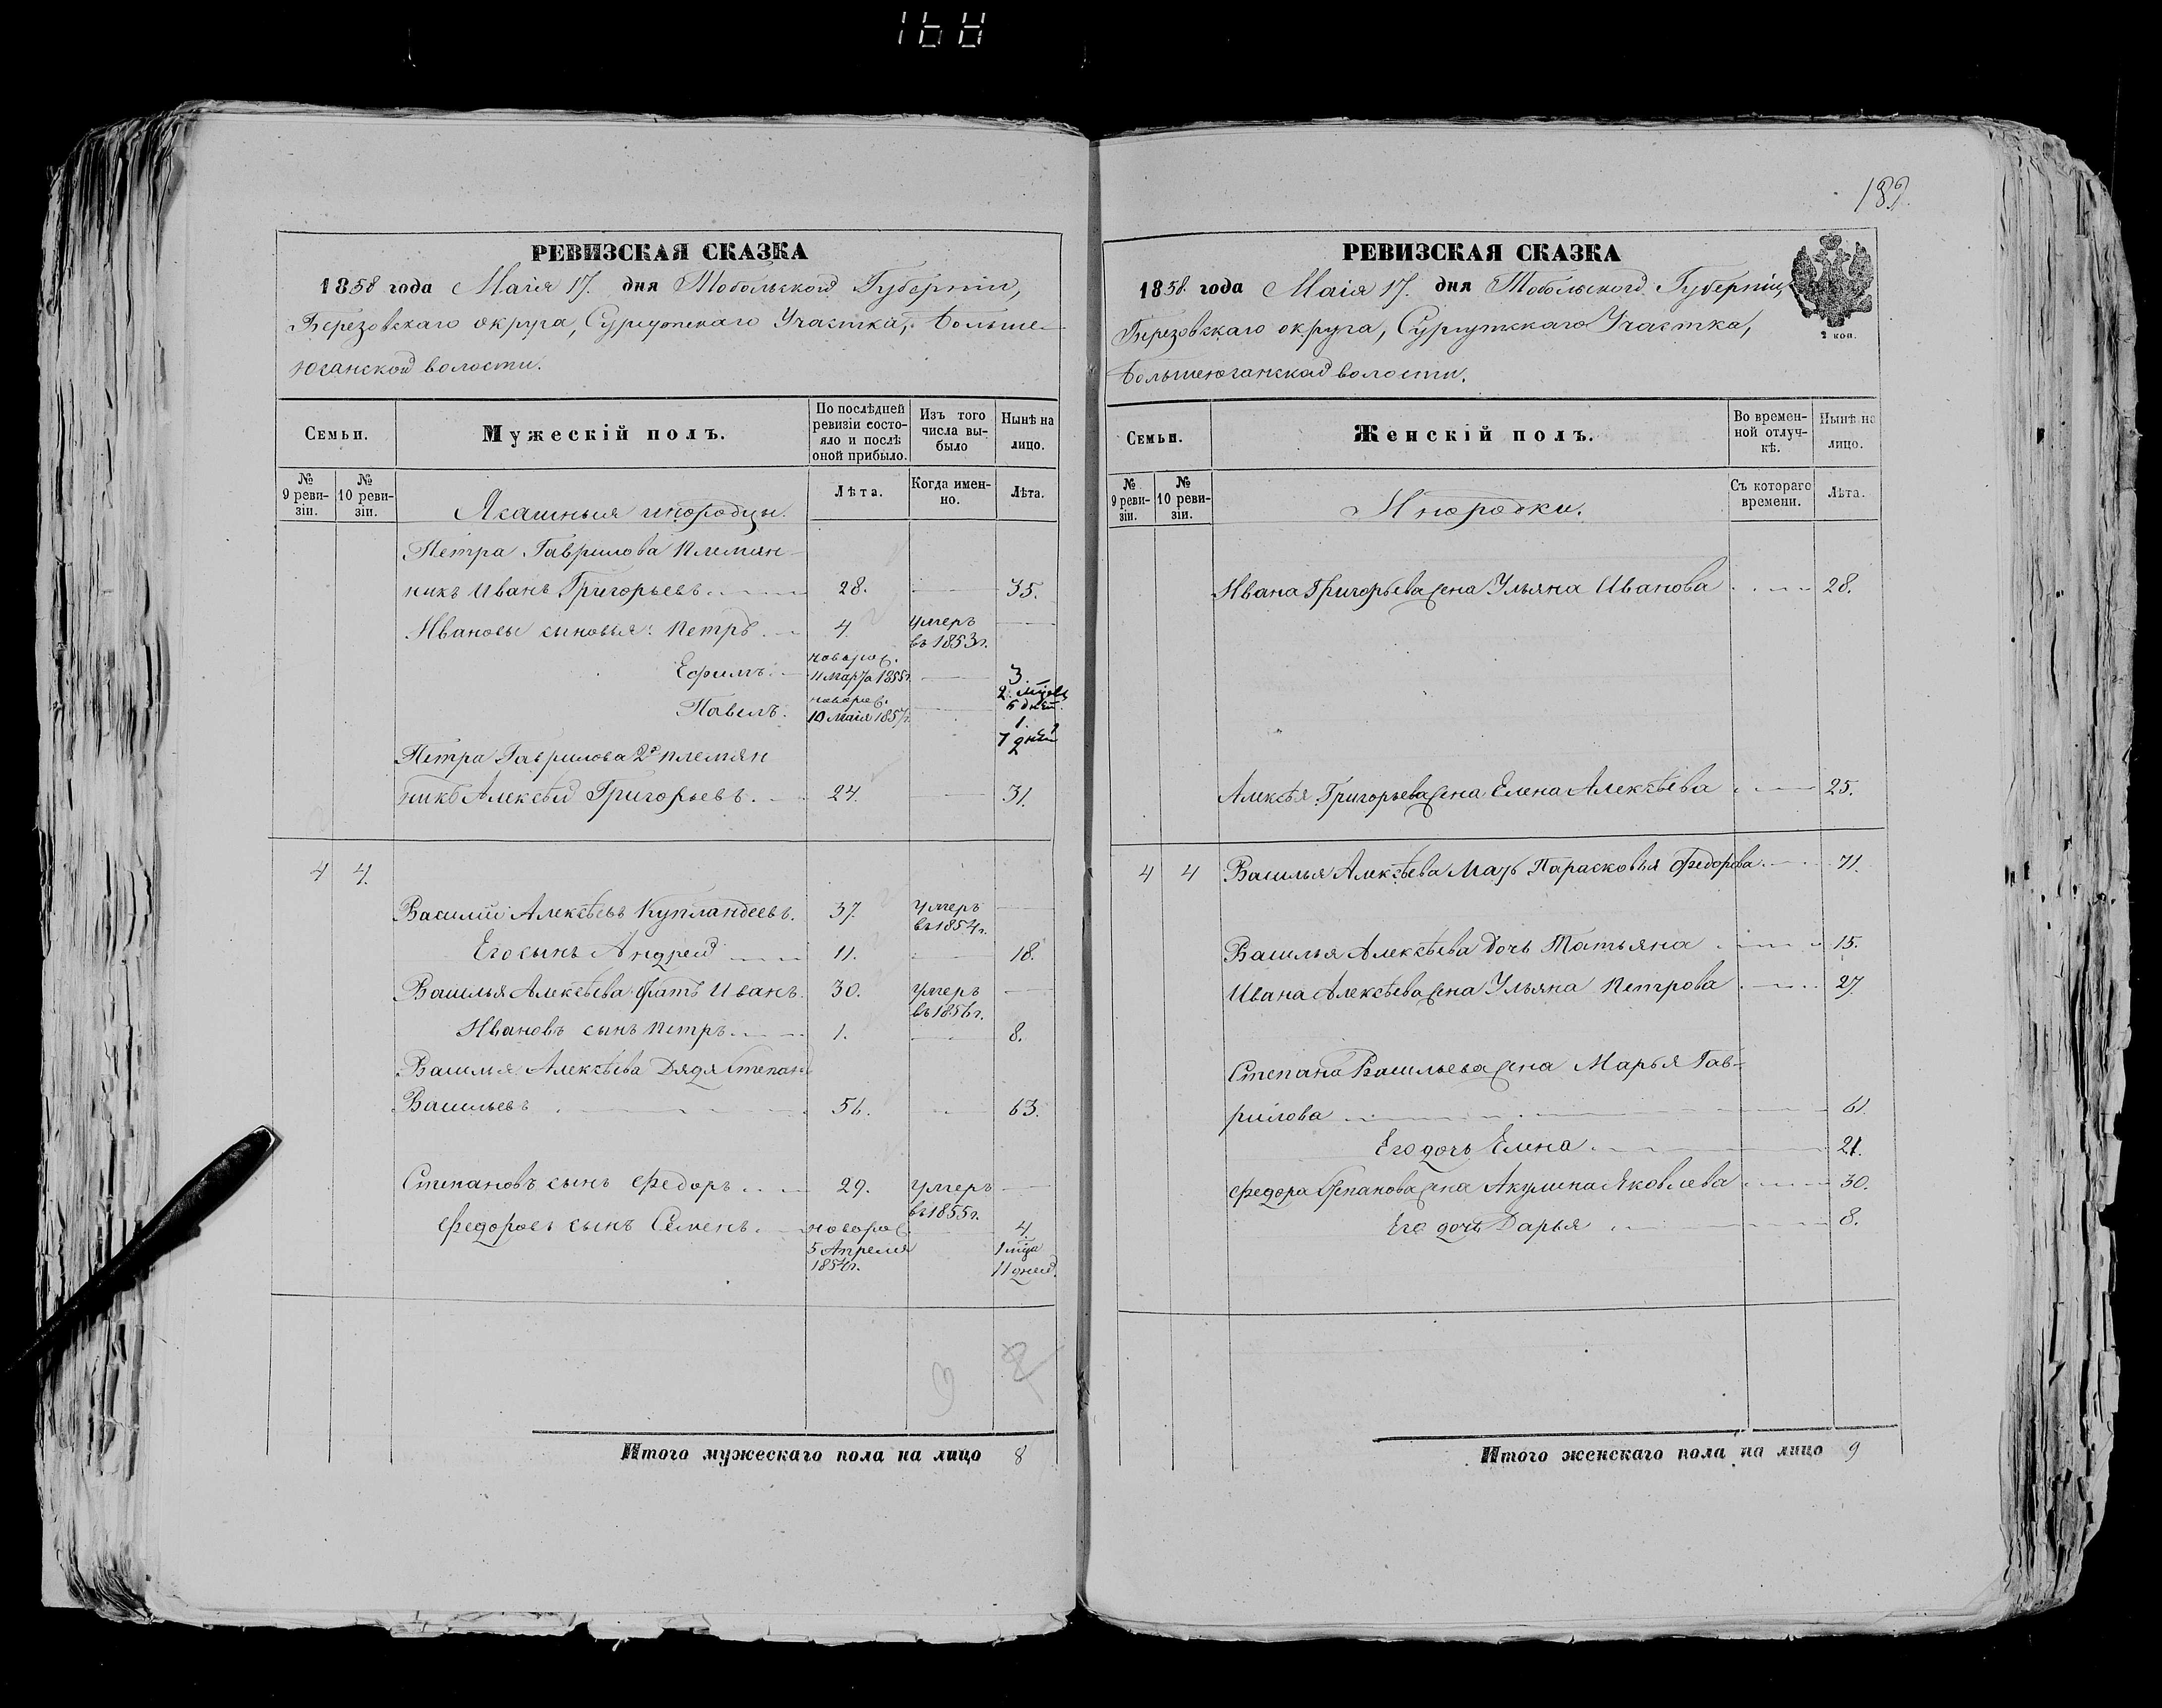 182.
РЕВИЗСКАЯ СКАЗКА
1858 года Маія 17. дня Тобольской Губерніи,
Березовскаго округа, Сургутскаго Участка, Больше-
юганской волости.
Семьи.
Мужескій полъ.
По послѣдней ревизіи состо-яло и послѣ оной прибыло.
Изъ того числа вы-было
Нынѣ на лицо.
№ 9 реви-зіи.
№ 10 реви-зіи.
Лѣта.
Когда имен-но.
Лѣта.
Ясашныя инородцы.
Петра Гаврилова племян-
никъ Иванъ Григорьевъ 28. 35.
Ивановы сыновья: Петръ 4. умеръ въ 1853 г.
Ефимъ. новорож. 11 марта 1855 г. 3. 2 мѣся. 6 дней.
Павелъ. новорож. 10 маія 1857 г. 1. 7 дней
Петра Гаврилова 2й племян
никъ Алексѣй Григорьевъ. 24. 31.
4 4.
Василий Алексѣевъ Купландеевъ. 37. умеръ въ 1854 г.
Его сынъ Андрей 11. 18.
Василья Алексѣева братъ Иванъ. 30. умеръ въ 1856 г.
Ивановъ сынъ Петръ 1. 8.
Василья Алексѣева Дядя Степанъ
Васильевъ 56. 63.
Степановъ сынъ Федоръ 29. умеръ въ 1855 г.
Федоровъ сынъ Семенъ новорож. 5 Апреля 1854 г. 4. 1 мѣца 11 дней.
Итого мужескаго пола на лицо 8
РЕВИЗСКАЯ СКАЗКА
1858 года Маія 17. дня Тобольской Губерніи,
Березовскаго округа, Сургутскаго Участка,
Большеюганской волости.
2 коп.
Семьи.
Женскій полъ.
Во времен-ной отлуч-кѣ.
Нынѣ на лицо.
№ 9 реви-зіи.
№ 10 реви-зіи.
Съ котораго времени.
Лѣта.
Инородки.
Ивана Григорьева жена Ульяна Иванова 28.
Алексѣя Григорьева жена Елена Алексѣева 25.
4 4 Василья Алексѣева мать Парасковья Федорова 71.
Василья Алексѣева дочь Татьяна 15.
Ивана Алексѣева жена Ульяна Петрова 27.
Степана Васильева жена Марья Гав-
рилова 61.
Его дочь Елена 21.
Федора Степанова жена Акулина Яковлева 30.
Его дочь Дарья 8.
Итого женскаго пола на лицо 9